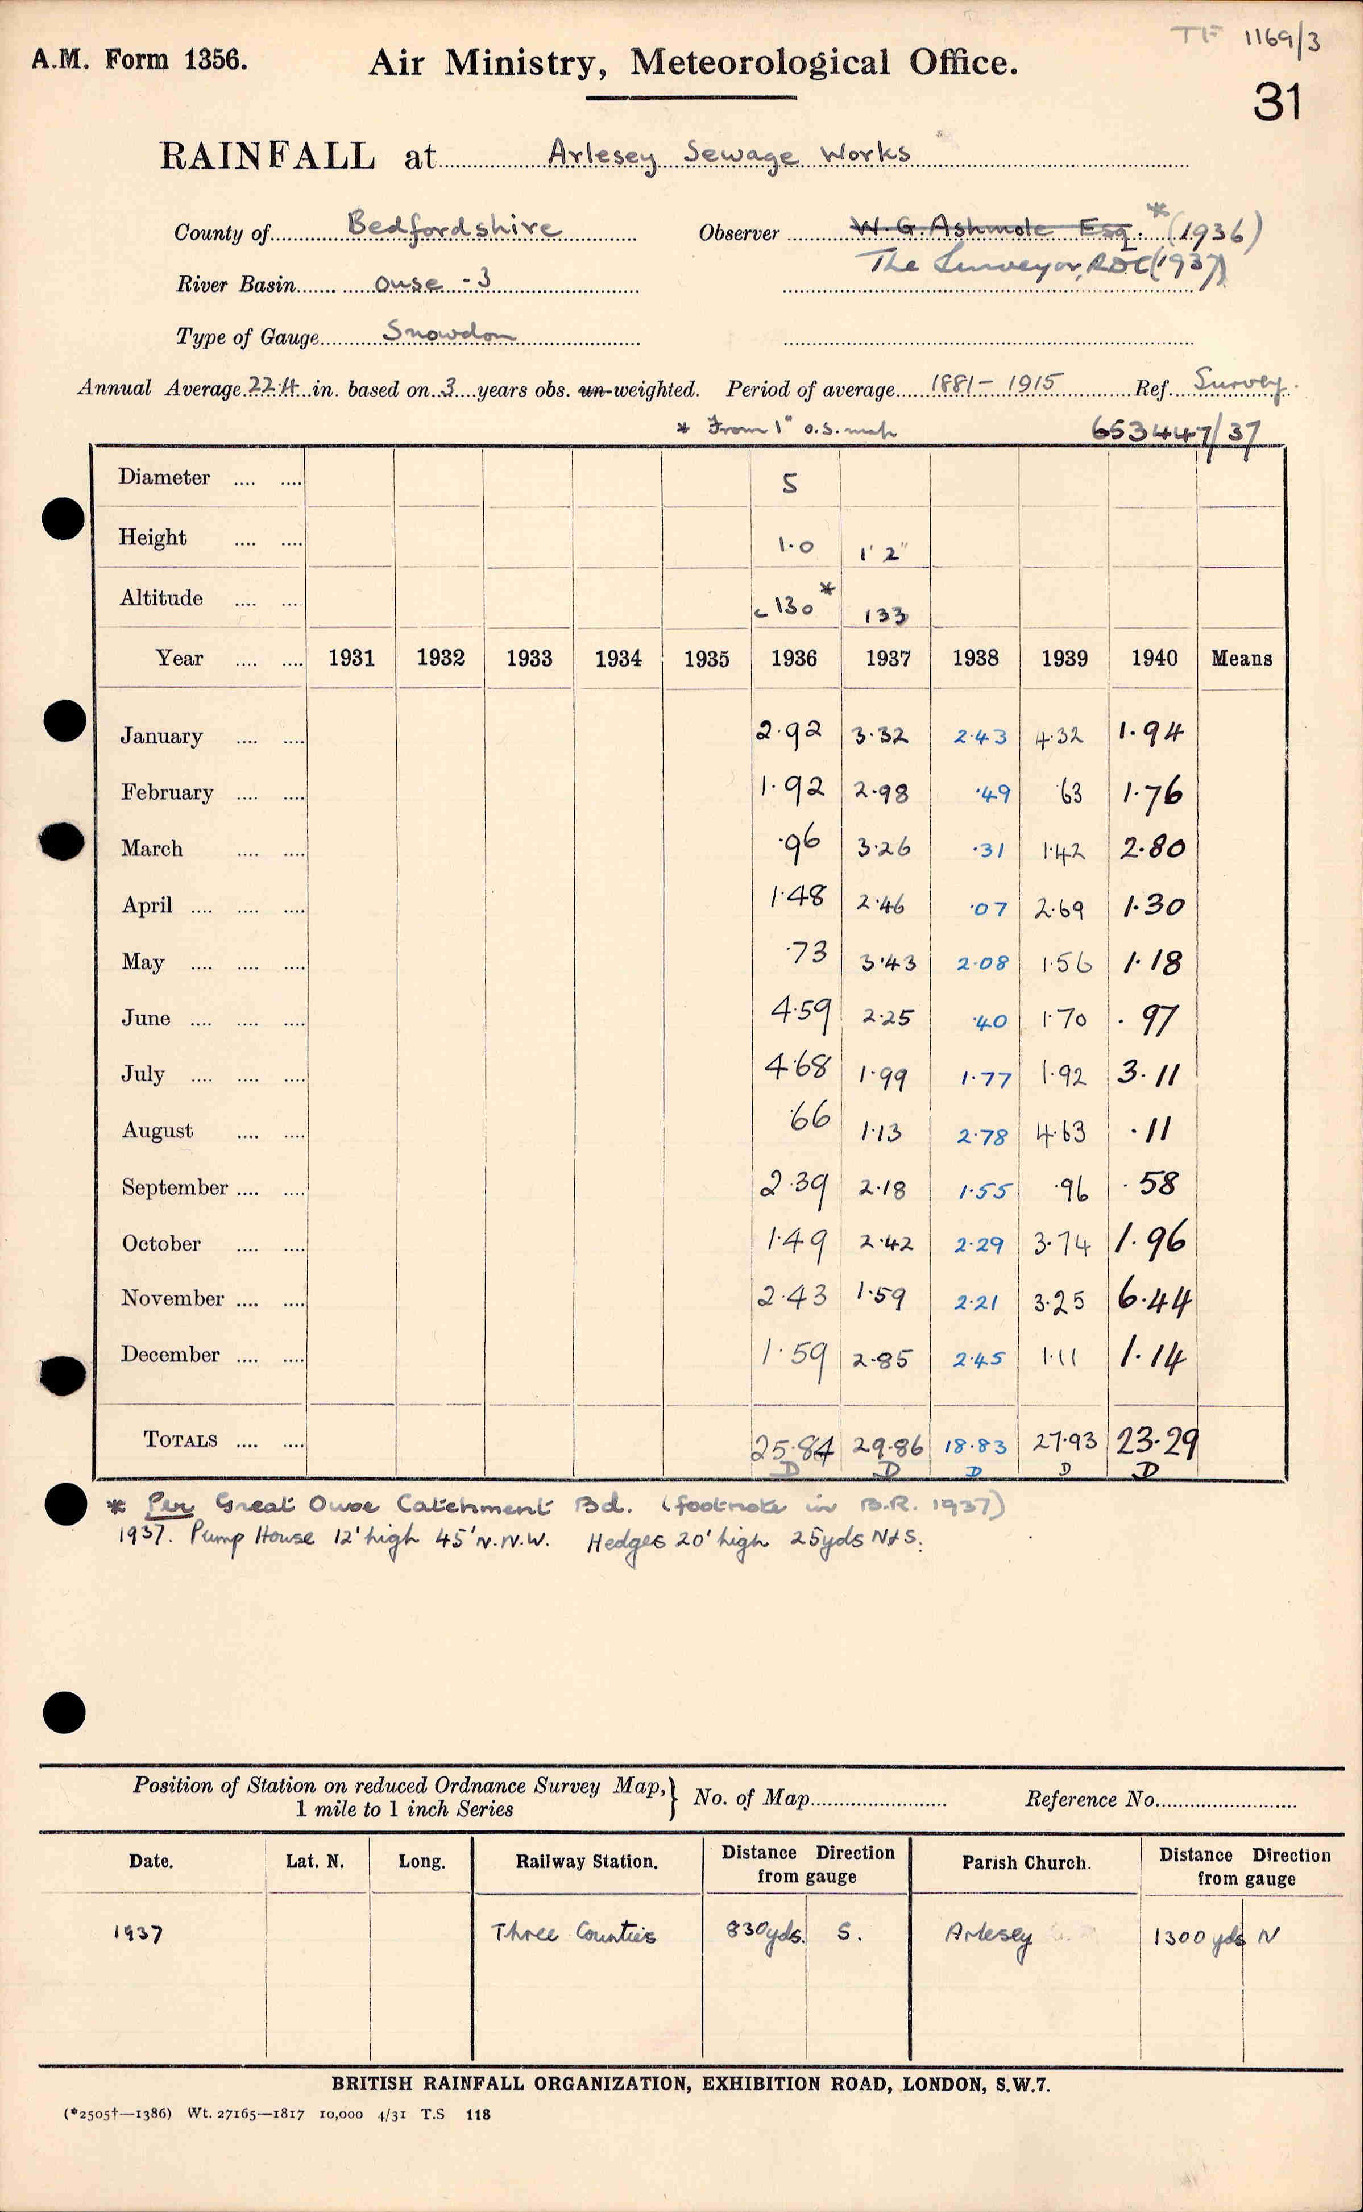 TF 1169/3
A.M. Form 1356. Air Ministry, Meteorological Office.
31
RAINFALL at Arlesey Sewage Works
County of Bedfordshire Observer W. G. Ashmole Esq. * (1936)
The Surveyor, RDC (1937)
River Basin Ouse - 3
Type of Gauge Snowdon
Annual Average 22.4 in. based on 3 years obs. un-weighted. Period of average 1881 - 1915 Ref. Survey.
* From 1" O.S. map 653447/37
Diameter .... .... 5
Height .... .... 1.0 1' 2"
Altitude .... .... c 130 * 133
Year .... .... 1931 1932 1933 1934 1935 1936 1937 1938 1939 1940 Means
January .... .... 2.92 3.32 2.43 4.32 1.94
February .... .... 1.92 2.98 .49 .63 1.76
March .... .... .96 3.26 .31 1.42 2.80
April .... .... .... 1.48 2.46 .07 2.69 1.30
May .... .... .... .73 3.43 2.08 1.56 1.18
June .... .... .... 4.59 2.25 .40 1.70 .97
July .... .... .... 4.68 1.99 1.77 1.92 3.11
August .... .... .66 1.13 2.78 4.63 .11
September .... .... 2.39 2.18 1.55 .96 .58
October .... .... 1.49 2.42 2.29 3.74 1.96
November .... .... 2.43 1.59 2.21 3.25 6.44
December .... .... 1.59 2.85 2.45 1.11 1.14
TOTALS .... .... 25.84 29.86 18.83 27.93 23.29
D D D D D
* Per Great Ouse Catchment Bd. (footnote in B.R. 1937)
1937. Pump House 12' high 45' N.N.W. Hedges 20' high 25yds N & S.
Position of Station on reduced Ordnance Survey Map, } No. of Map Reference No.
1 mile to 1 inch Series
Date. Lat. N. Long. Railway Station. Distance Direction from gauge Parish Church. Distance Direction from gauge
1937 Three Counties 830yds. S. Arlesey 1300 yds N
BRITISH RAINFALL ORGANIZATION, EXHIBITION ROAD, LONDON, S.W.7.
(*2505†—1386) Wt. 27165—1817 10,000 4/31 T.S 118